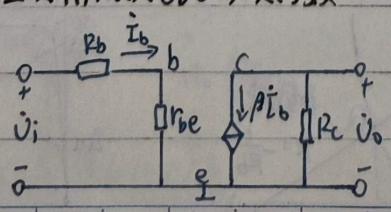 Rb
İb
b
c
+
+
U̇i
rbe
βİb
Rc
U̇o
-
e
-